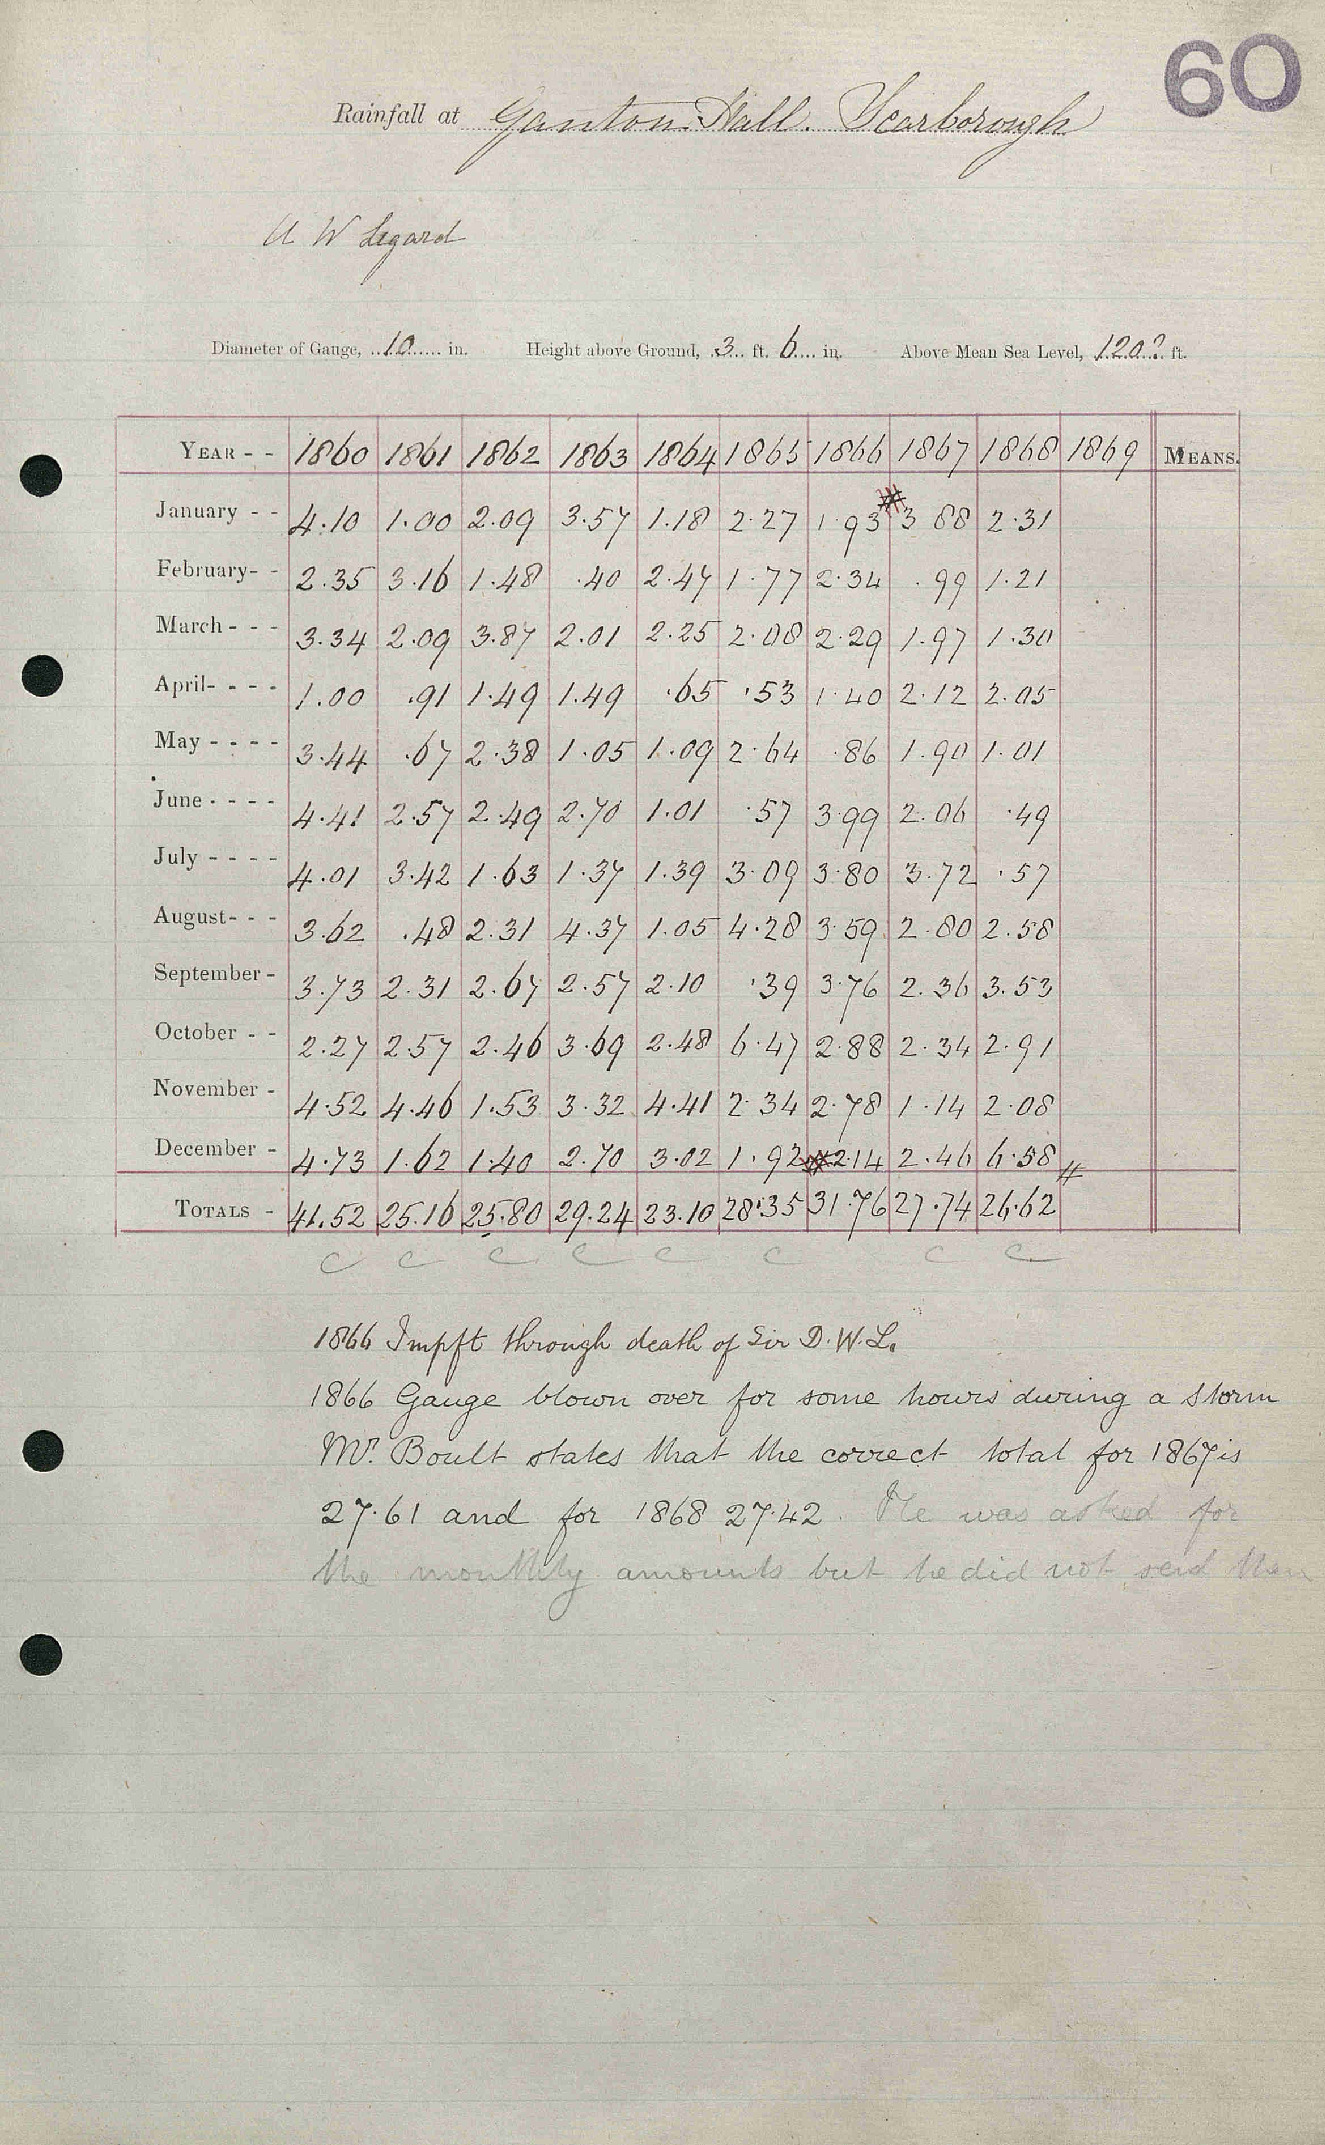 60
Rainfall at Ganton Hall. Scarborough
A W Legard
Diameter of Gauge, 10 in. Height above Ground, 3 ft. 6 in. Above Mean Sea Level, 120? ft.
YEAR - - 1860 1861 1862 1863 1864 1865 1866 1867 1868 1869 MEANS.
January - - 4.10 1.00 2.09 3.57 1.18 2.27 1.93 3.88 2.31
February- - 2.35 3.16 1.48 .40 2.47 1.77 2.34 .99 1.21
March - - - 3.34 2.09 3.87 2.01 2.25 2.08 2.29 1.97 1.30
April- - - - 1.00 .91 1.49 1.49 .65 .53 1.40 2.12 2.05
May - - - - 3.44 .67 2.38 1.05 1.09 2.64 .86 1.90 1.01
June - - - - 4.41 2.57 2.49 2.70 1.01 .57 3.99 2.06 .49
July - - - - 4.01 3.42 1.63 1.37 1.39 3.09 3.80 3.72 .57
August- - - 3.62 .48 2.31 4.37 1.05 4.28 3.59 2.80 2.58
September - 3.73 2.31 2.67 2.57 2.10 .39 3.76 2.36 3.53
October - - 2.27 2.57 2.46 3.69 2.48 6.47 2.88 2.34 2.91
November - 4.52 4.46 1.53 3.32 4.41 2.34 2.78 1.14 2.08
December - 4.73 1.62 1.40 2.70 3.02 1.92 2.14 2.46 6.58
TOTALS - 41.52 25.16 25.80 29.24 23.10 28.35 31.76 27.74 26.62
C C C C C C C C
1866 Impft through death of Sir D.W.L.
1866 Gauge blown over for some hours during a storm
Mr. Boult states that the correct total for 1867 is
27.61 and for 1868 27.42. He was asked for
the monthly amounts but he did not send them